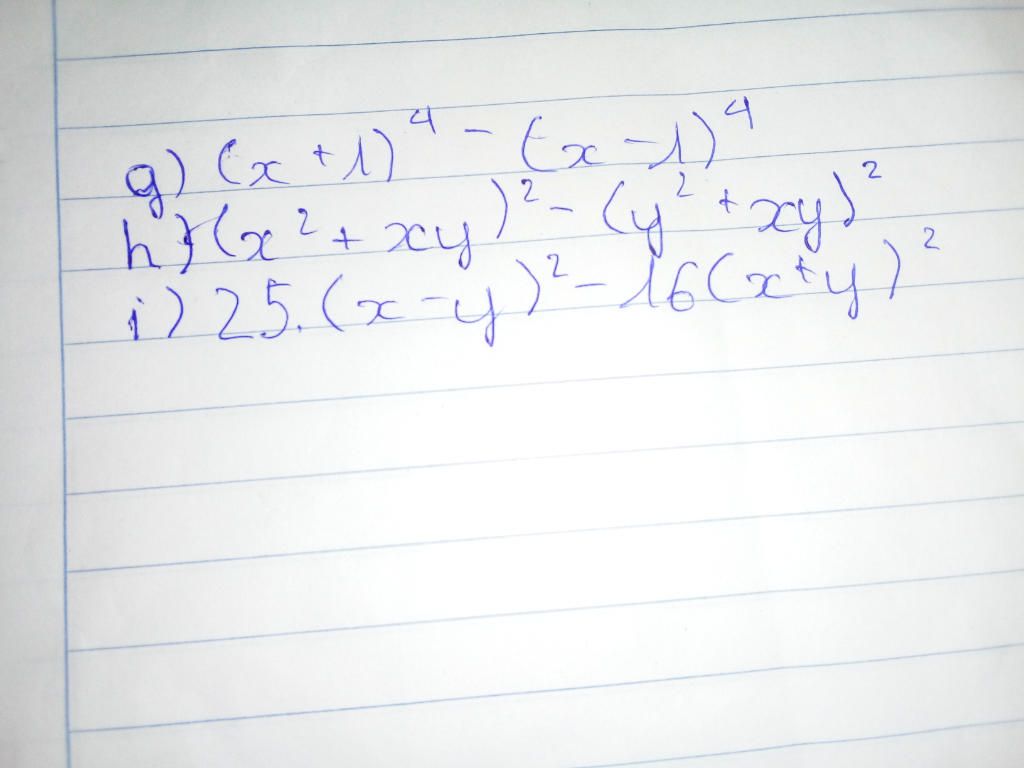 g) (x+1)⁴ - (x-1)⁴
h) (x² + xy)² - (y² + xy)²
i) 25.(x-y)² - 16(x+y)²